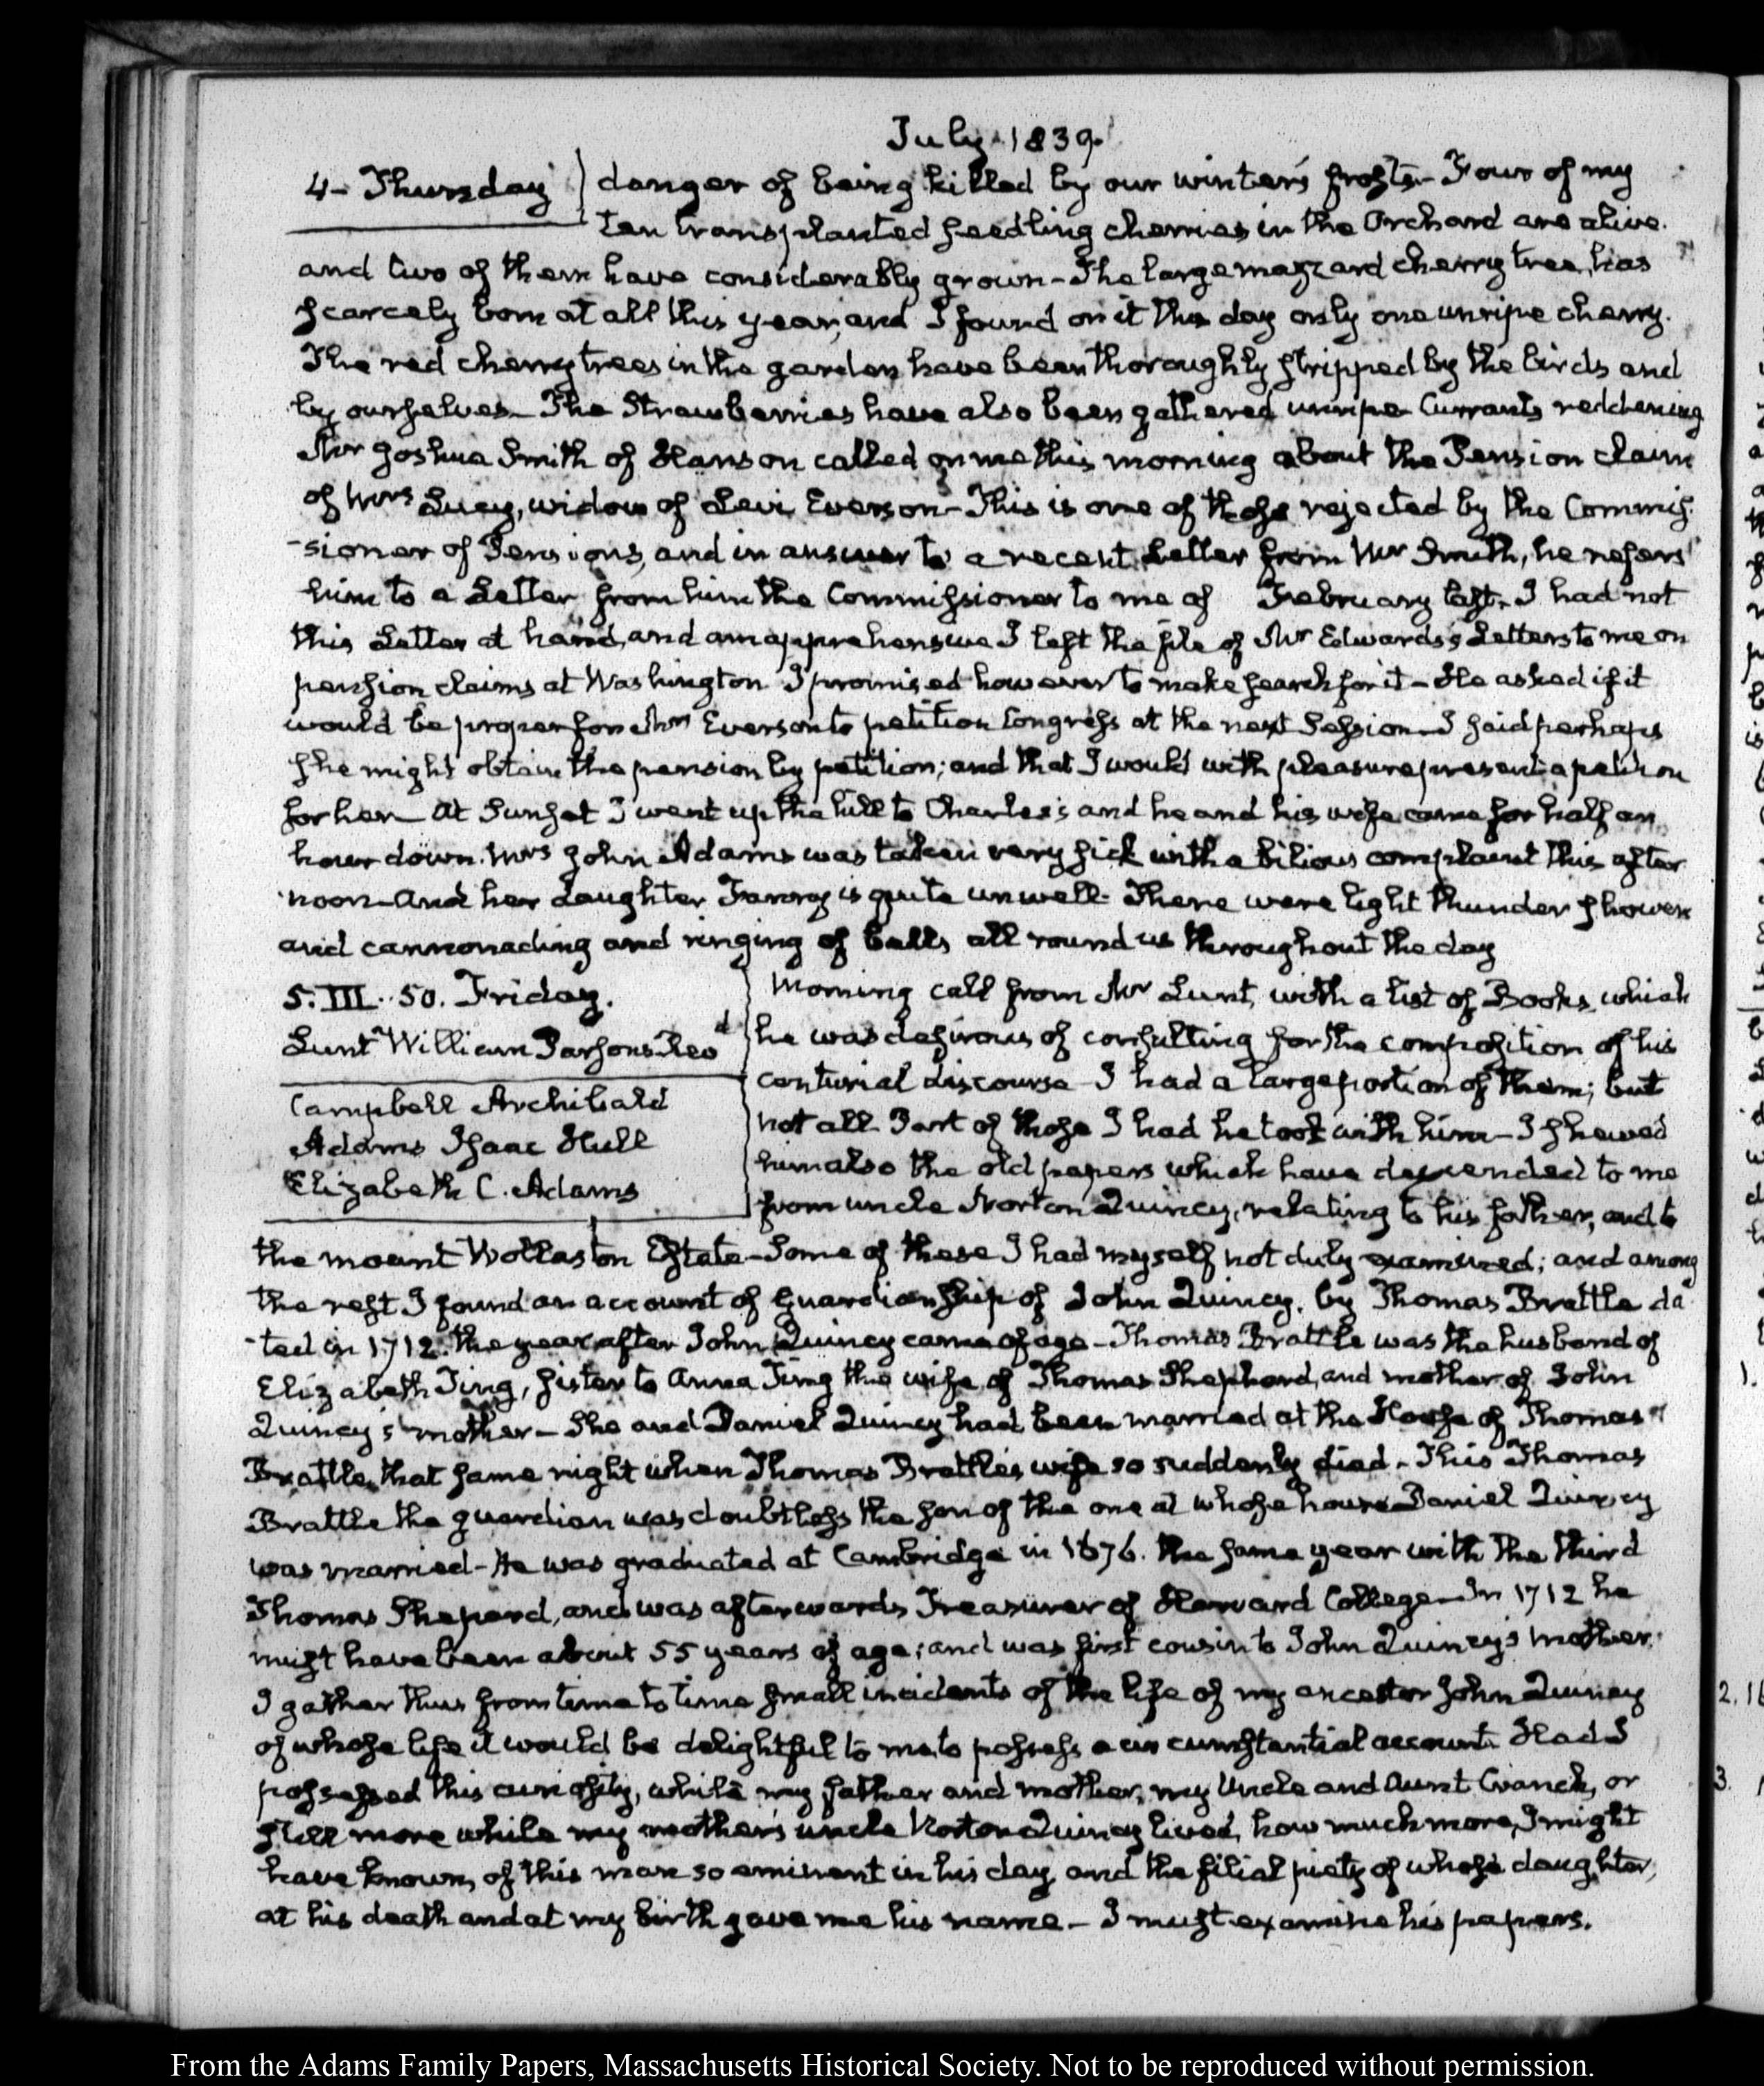 July 1839.
4- Thursday
danger of being killed by our winter's frosts- Four of my
ten transplanted seedling cherries in the Orchard are alive.
and two of them have considerably grown- The large mazzard cherry tree, has
scarcely born at all this year, and I found on it this day only one unripe cherry.
The red cherry trees in the garden have been thoroughly stripped by the birds and
by ourselves- The Strawberries have also been gathered unripe Currants reddening
Mr Joshua Smith of Hanson called on me this morning about the Pension claim
of Mrs Lucy, widow of Levi Everson- This is one of those rejected by the Commis-
-sioner of Pensions, and in answer to a recent Letter from Mr Smith, he refers
him to a Letter from him the Commissioner to me of February last. I had not
this Letter at hand, and am apprehensive I left the file of Mr Edwards's Letters to me on
pension claims at Washington I promised however to make search for it- He asked if it
would be proper for Mrs Everson to petition Congress at the next Session- I said perhaps
she might obtain the pension by petition; and that I would with pleasure present a petition
for her- At Sunset I went up the hill to Charles's and he and his wife came for half an
hour down. Mrs John Adams was taken very sick with a bilious complaint this after
noon- And her daughter Fanny is quite unwell- There were light thunder showers
and cannonading and ringing of bells all round us throughout the day
5. III. 50. Friday.
Lunt William Parsons Revd
Campbell Archibald
Adams Isaac Hull
Elizabeth C. Adams
Morning call from Mr Lunt, with a list of Books which
he was desirous of consulting for the composition of his
centurial discourse- I had a large portion of them; but
not all- Part of those I had he took with him- I shewed
him also the old papers which have descended to me
from uncle Norton Quincy, relating to his father, and to
the mount Wollaston Estate- Some of these I had myself not duly examined; and among
the rest I found an account of Guardianship of John Quincy, by Thomas Brattle da-
-ted in 1712. the year after John Quincy came of age- Thomas Brattle was the husband of
Elizabeth Ting, sister to Anna Ting the wife of Thomas Shephard, and mother of John
Quincy's mother- She and Daniel Quincy had been married at the House of Thomas
Brattle, that same night when Thomas Brattle's wife so suddenly died- This Thomas
Brattle the guardian was doubtless the son of the one at whose house Daniel Quincy
was married- He was graduated at Cambridge in 1676. the same year with the third
Thomas Shepard, and was afterwards Treasurer of Harvard College- In 1712 he
must have been about 55 years of age; and was first cousin to John Quincy's mother.
I gather thus from time to time small incidents of the life of my ancestor John Quincy
of whose life it would be delightful to me to possess a circumstantial account. Had I
possessed this curiosity, while my father and mother, my Uncle and Aunt Cranch, or
still more while my mother's uncle Norton Quincy lived, how much more, I might
have known, of this man so eminent in his day, and the filial piety of whose daughter,
at his death and at my birth gave me his name- I must examine his papers.
From the Adams Family Papers, Massachusetts Historical Society. Not to be reproduced without permission.